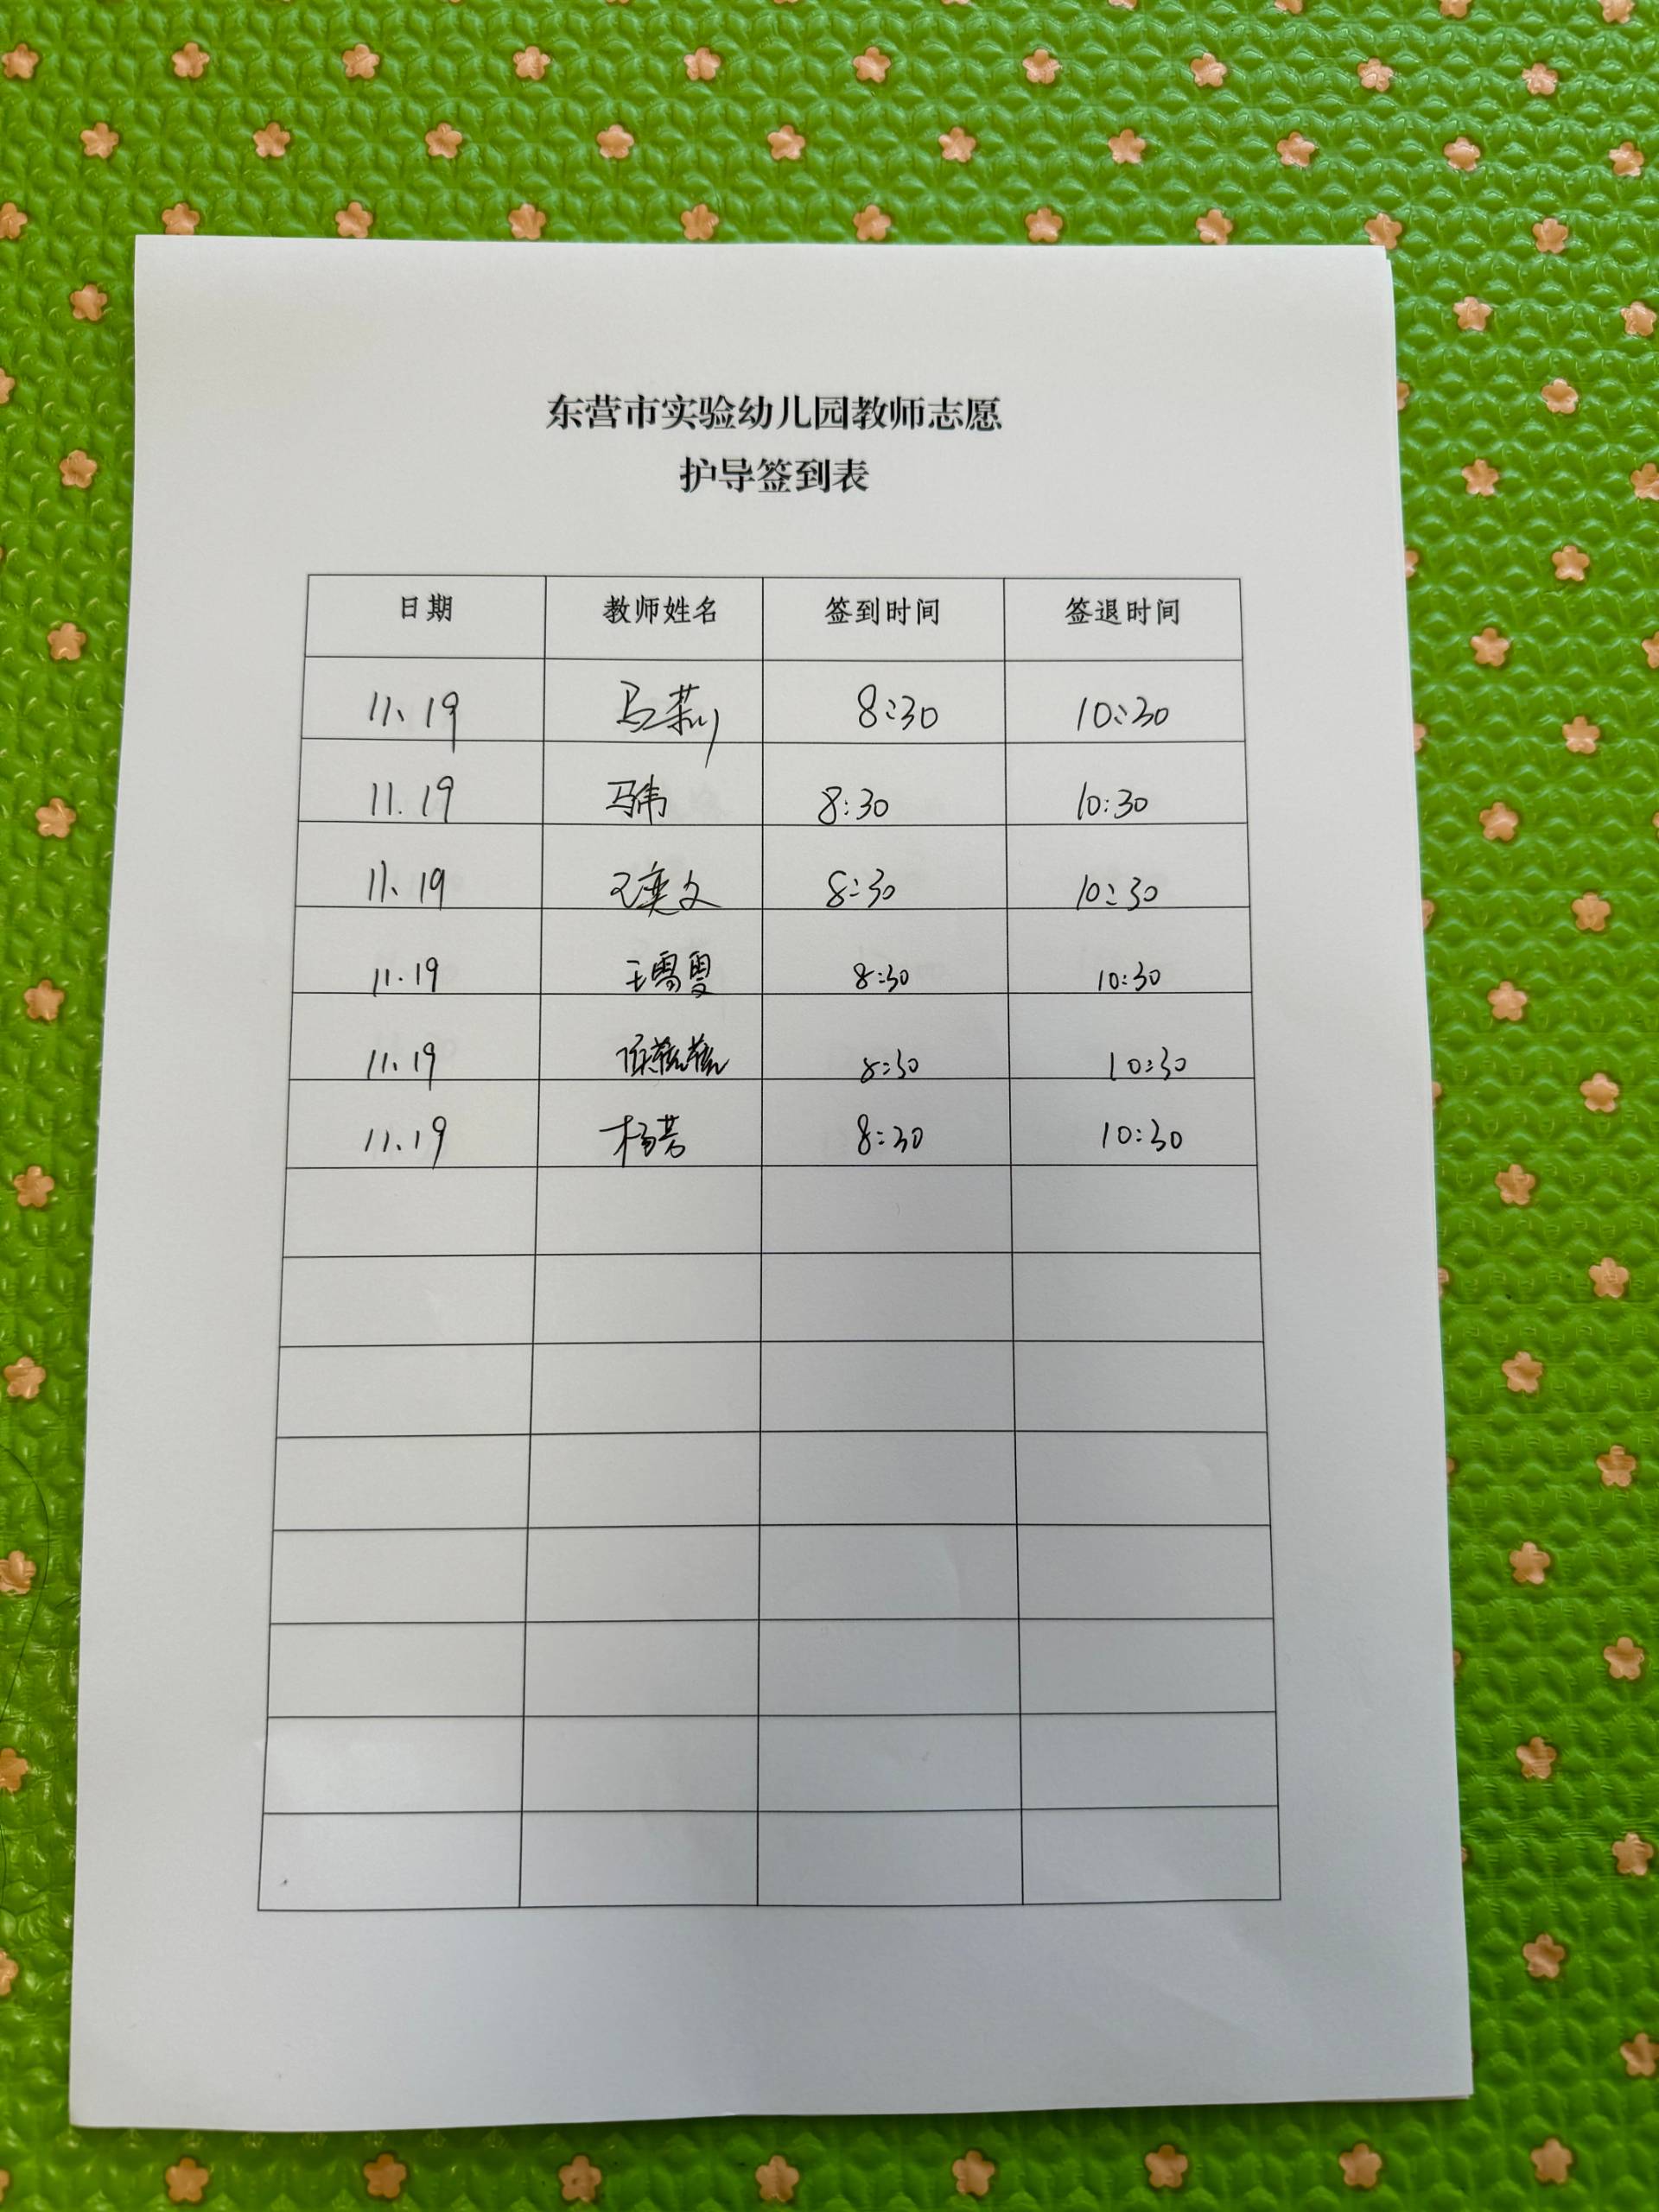 东营市实验幼儿园教师志愿
护导签到表
日期 教师姓名 签到时间 签退时间
11、19 马 8:30 10:30
11.19 马伟 8:30 10:30
11、19 王奕文 8:30 10:30
11.19 王雪雯 8:30 10:30
11、19 8:30 10:30
11.19 杨芳 8:30 10:30